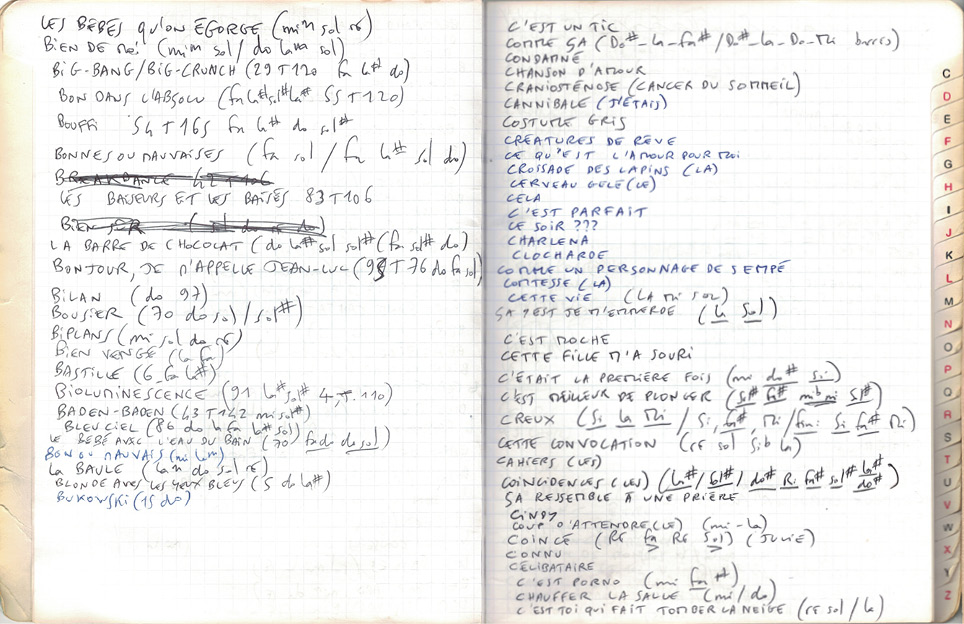 LES BÉBÉS QU'ON ÉGORGE (mim sol ré)
BIEN DE MOI (mim sol / do lam sol)
BIG-BANG/BIG-CRUNCH (29 T 120 fa la# do)
BON DANS L'ABSOLU (fa la# sol# la# 55 T 120)
BOUFFI 54 T 165 fa la# do sol#
BONNES OU MAUVAISES (fa sol / fa la# sol do)
BREAKDANCE 42 T 106
LES BAISEURS ET LES BAISÉS 83 T 106
BIEN SÛR
LA BARRE DE CHOCOLAT (do la# sol sol# (fa sol# do)
BONJOUR, JE M'APPELLE JEAN-LUC (95 T 76 do fa sol)
BILAN (do 97)
BOUSIER (70 do sol / sol#)
BIPLANS (mi sol do ré)
BIEN VENGÉ (la fa)
BASTILLE (6 fa la#)
BIOLUMINESCENCE (91 la# sol# 4 T. 110)
BADEN-BADEN (43 T 142 mi sol#)
BLEU CIEL (86 do la fa la# sol)
LE BÉBÉ AVEC L'EAU DU BAIN (70 fa do do sol)
BON OU MAUVAIS (mi lam)
LA BAULE (lam do sol ré)
BLONDE AVEC LES YEUX BLEUS (5 do la#)
BUKOWSKI (15 do)
C'EST UN TIC
COMME ÇA (Do#-la-fa# / Do#-la-Do-Mi barrés)
CONDAMNÉ
CHANSON D'AMOUR
CRANIOSTÉNOSE (CANCER DU SOMMEIL)
CANNIBALE (J'ÉTAIS)
COSTUME GRIS
CRÉATURES DE RÊVE
CE QU'EST L'AMOUR POUR MOI
CROISADE DES LAPINS (LA)
CERVEAU GELÉ (LE)
CELA
C'EST PARFAIT
CE SOIR ???
CHARLENA
CLOCHARDE
COMME UN PERSONNAGE DE SEMPÉ
COMTESSE (LA)
CETTE VIE (LA MI SOL)
ÇA Y EST JE M'EMMERDE (la Sol)
C'EST MOCHE
CETTE FILLE M'A SOURI
C'ÉTAIT LA PREMIÈRE FOIS (mi do# Si)
C'EST MEILLEUR DE PLONGER (Sol# fa# mi Sol#)
CREUX (Si la Mi / Si, fa#, Mi / fin: Si fa# Mi)
CETTE CONVOCATION (ré sol Sib la)
CAHIERS (LES)
COÏNCIDENCES (LES) (la# / sol# / do# Ré fa# sol# la# do#
ÇA RESSEMBLE À UNE PRIÈRE
CINDY
COUP D'ATTENDRE (LE) (mi-la)
COINCÉ (RÉ fa RÉ Sol) (JULIE)
CONNU
CÉLIBATAIRE
C'EST PORNO (mi fa#)
CHAUFFER LA SALLE (mi / do)
C'EST TOI QUI FAIT TOMBER LA NEIGE (ré sol / la)
C
D
E
F
G
H
I
J
K
L
M
N
O
P
Q
R
S
T
U
V
W
X
Y
Z